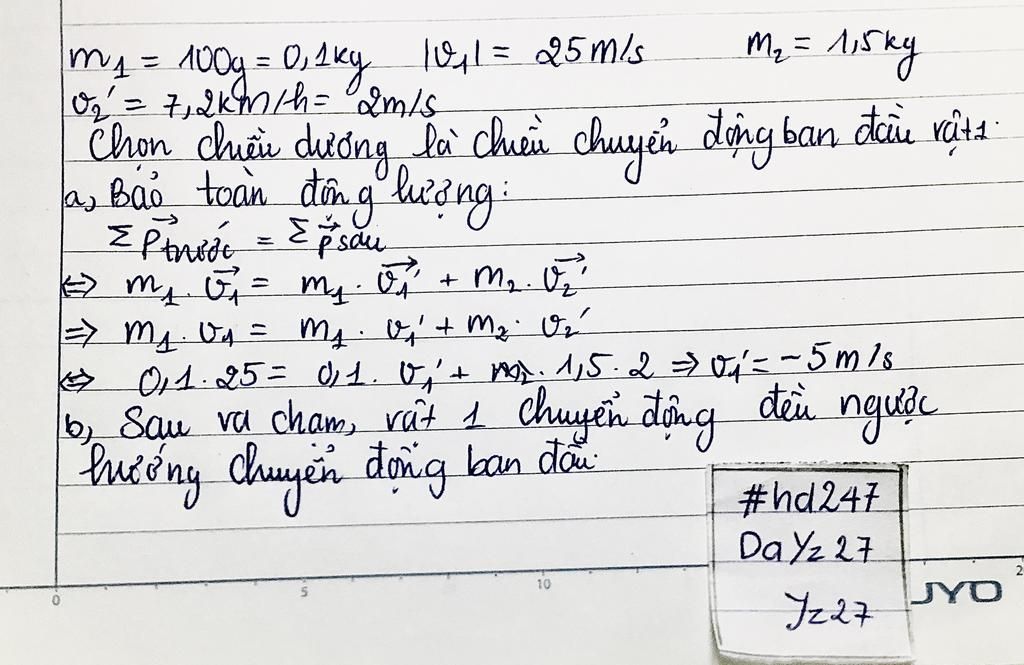 m₁ = 100g = 0,1kg |v₁| = 25m/s m₂ = 1,5kg
v₂' = 7,2km/h = 2m/s
Chọn chiều dương là chiều chuyển động ban đầu vật 1.
a, Bảo toàn động lượng:
Σ P⃗trước = Σ p⃗sau
⇔ m₁. v⃗₁ = m₁. v⃗₁' + m₂. v⃗₂'
⇒ m₁. v₁ = m₁. v₁' + m₂. v₂'
⇔ 0,1.25 = 0,1. v₁' + 1,5.2 ⇒ v₁' = -5m/s
b, Sau va chạm, vật 1 chuyển động đều ngược
hướng chuyển động ban đầu.
#hd247
DaYz27
Yz27
0 5 10 2
JYO